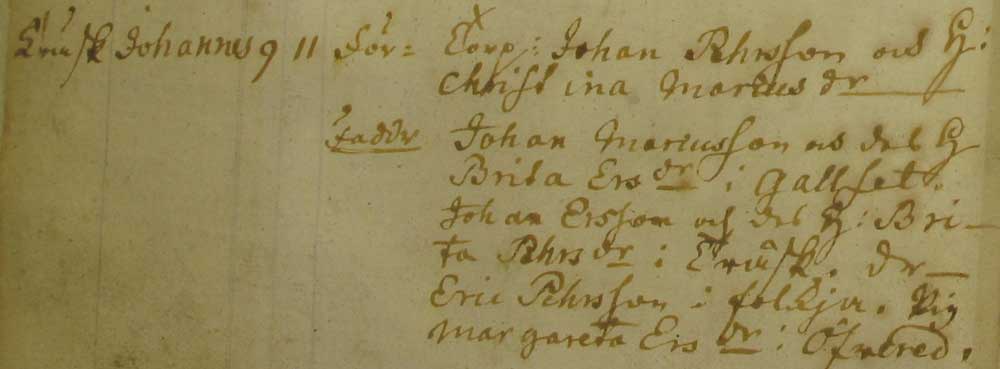 Krusk Johannes 9 11 För= Torp: Johan Pehrsson och H:
Christina Marcus dr
Faddr Johan Marcusson och des H
Brita Ers dr i Gallset.
Johan Ersson och des H: Bri-
ta Pehrs dr i Krusk. dr
Eric Pehrsson i folkja.
Margareta Ers dr i